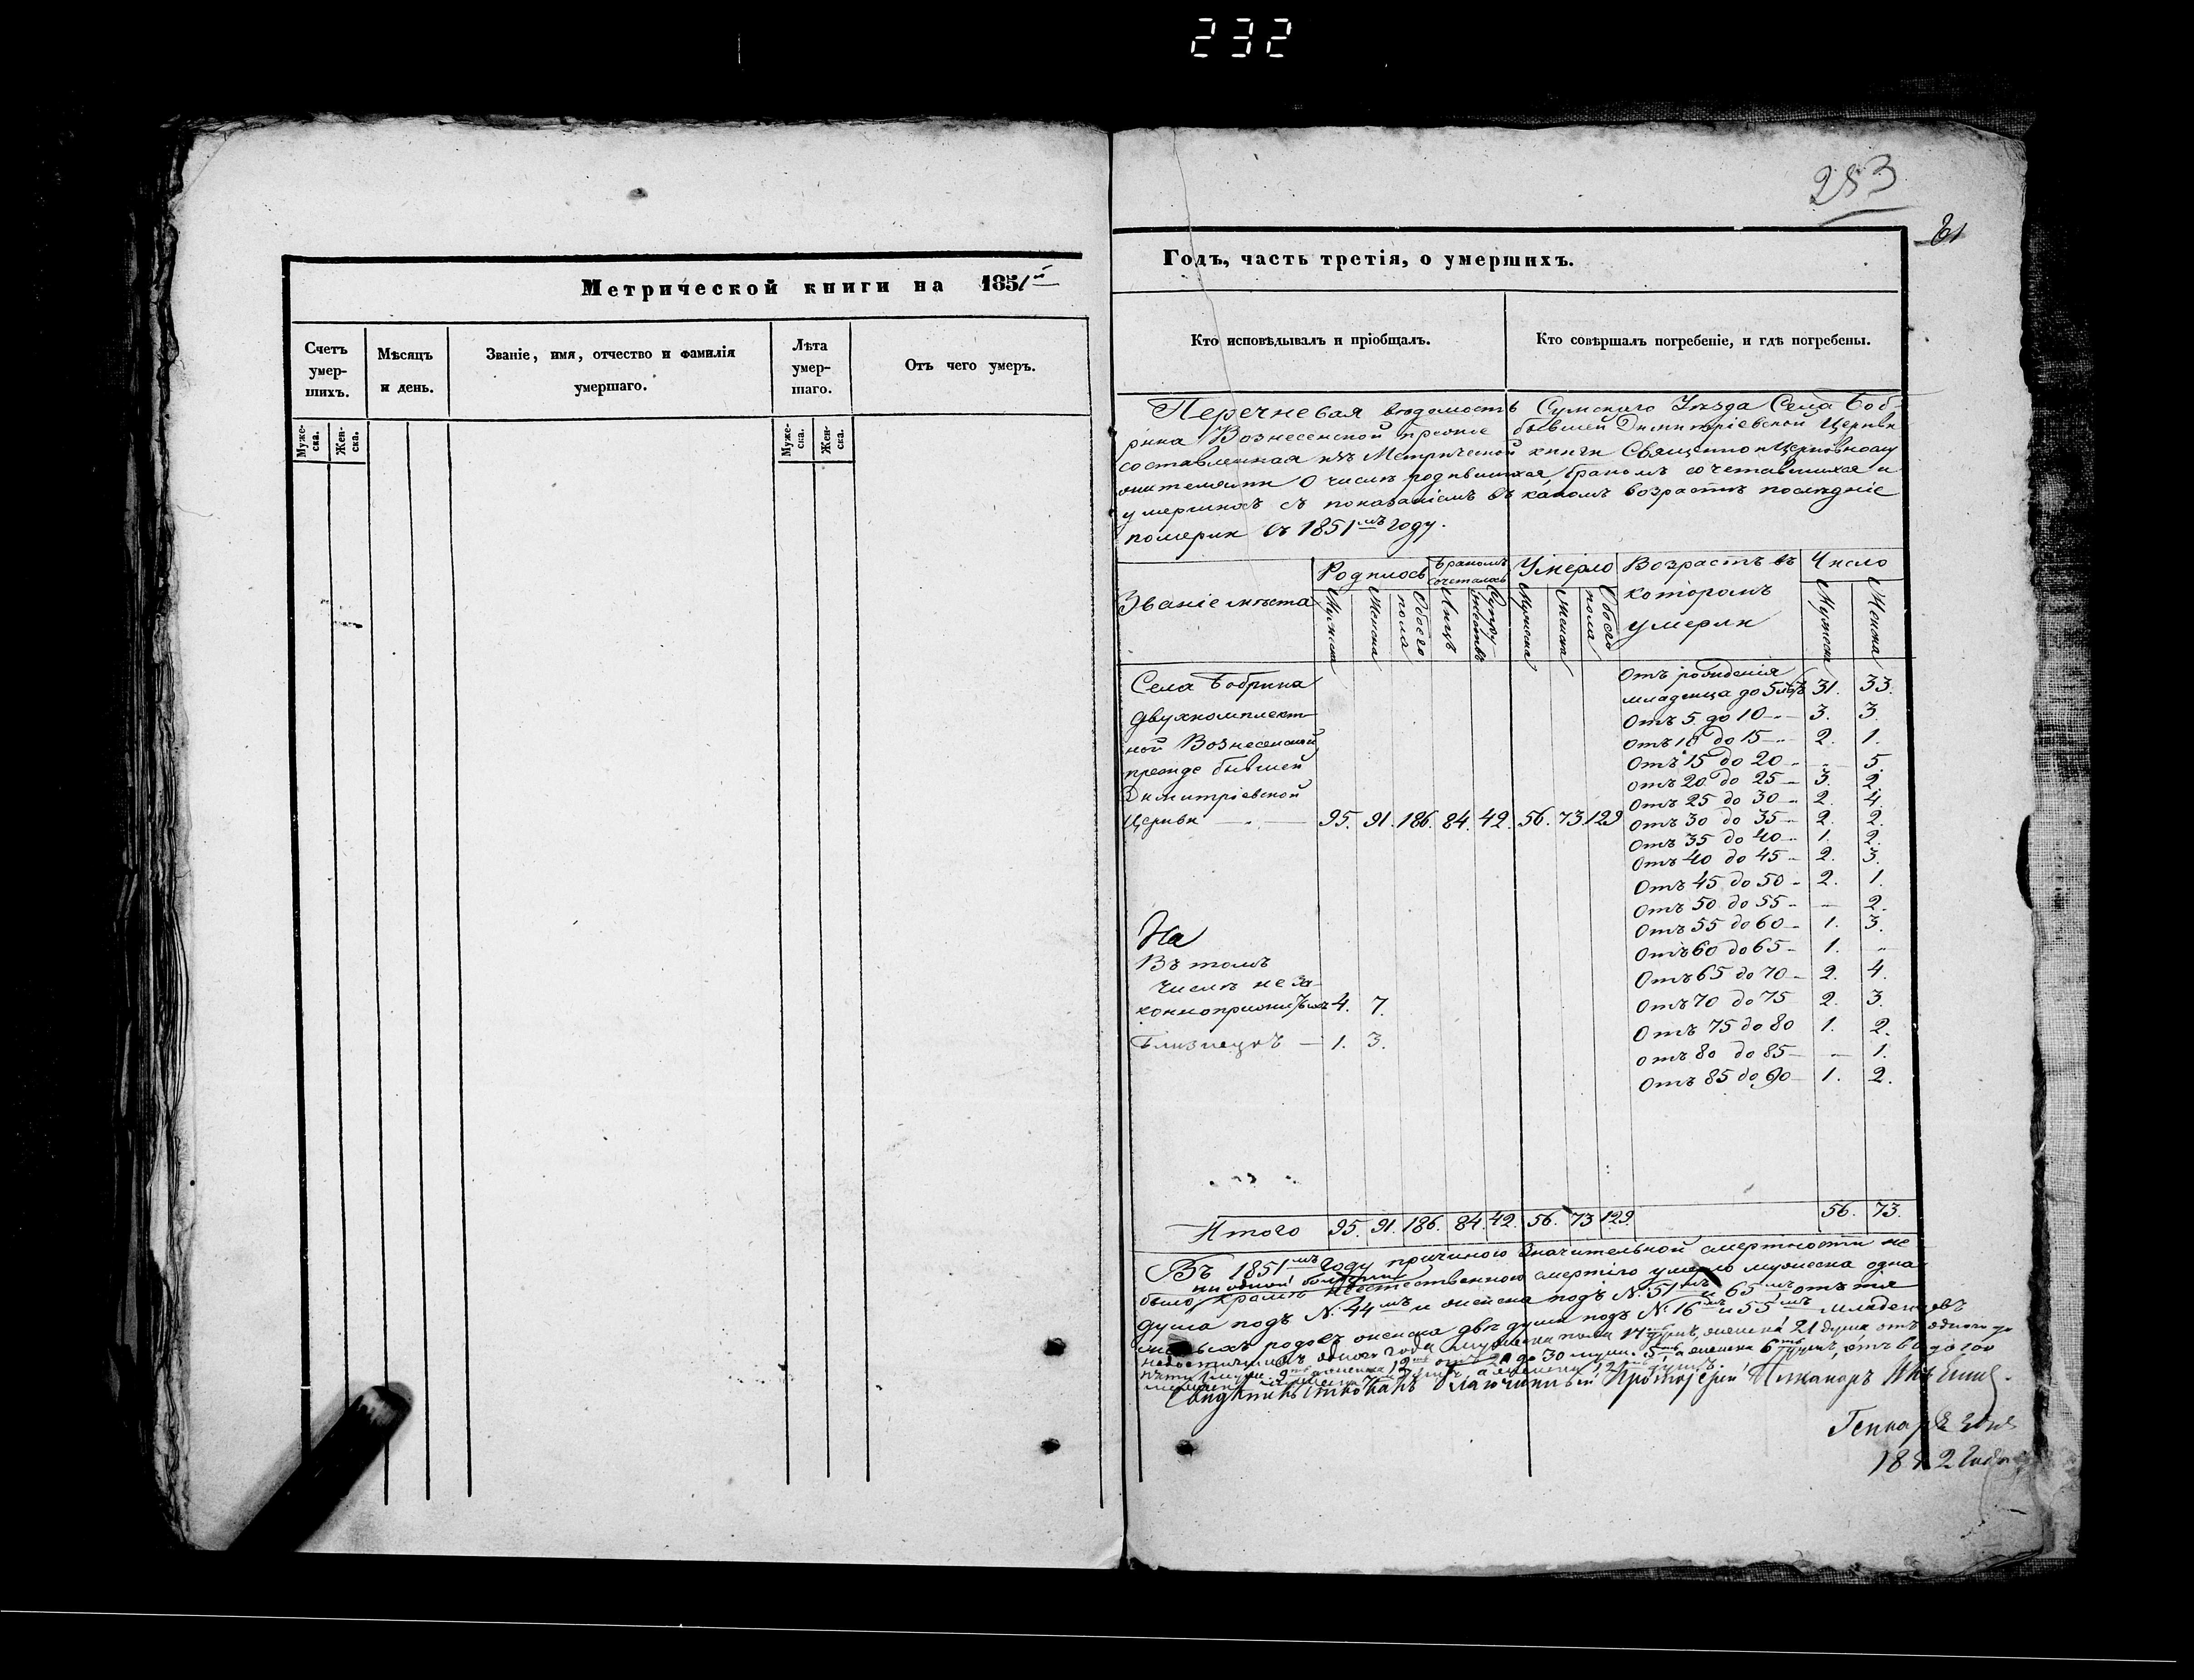 232
283
61
Метрической книги на 1851й
Годъ, часть третія, о умершихъ.
Счетъ умер-шихъ.
Мѣсяцъ и день.
Званіе, имя, отчество и фамилія умершаго.
Лѣта умер-шаго.
Отъ чего умеръ.
Муже-ска.
Жен-ска.
Муже-ска.
Жен-ска.
Кто исповѣдывалъ и пріобщалъ.
Кто совѣршалъ погребеніе, и гдѣ погребены.
Перечневая вѣдомость Сумскаго Уѣзда Села Боб-
рика Вознесенской прежде бывшей Димитріевской Церкви
составленная изъ Метрической книги Священноцерковнослу
жителями О числѣ родившихся, бракомъ сочетавшихся и
умершихъ съ показаніемъ въ какомъ возрастѣ послѣдніе
померли въ 1851мъ году.
Званіе мѣста
Родилось
Бракомъ сочеталось
Умерло
Возрастъ въ которомъ умерли
Число
Мужска
Женска
Обоего пола
Лицъ
Супружествъ
Мужска
Женска
Обоего пола
Мужска
Женска
Села Бобрика
двухкомплект-
ной Вознесенской
прежде бывшей
Димитріевской
Церкви — 95. 91. 186. 84. 42. 56. 73. 129
Отъ рожденія
младенца до 5 лѣтъ 31. 33.
Отъ 5 до 10 — 3. 3.
Отъ 10 до 15 — 2. 1.
Отъ 15 до 20 - - 5.
Отъ 20 до 25 — 3. 2.
Отъ 25 до 30 - 2. 4.
Отъ 30 до 35 - 2. 2.
Отъ 35 до 40 - 1. 2.
Отъ 40 до 45 - 2. 3.
Отъ 45 до 50 - 2. 1.
Отъ 50 до 55 - — 2.
Отъ 55 до 60 - 1. 3.
Отъ 60 до 65 - 1. -
Отъ 65 до 70 - 2. 4.
Отъ 70 до 75 2. 3.
Отъ 75 до 80 1. 2.
Отъ 80 до 85 — — 1.
Отъ 85 до 90 — 1. 2.
На
Въ томъ
числѣ неза-
конноприжитыхъ 4. 7.
Близнецовъ — 1. 3.
Итого 95. 91. 186. 84. 42. 56. 73 129. 56. 73.
Въ 1851мъ году причиною значительной смертности не
ни одной болѣзни
было, кромѣ неестественною смертію умерло мужеска одна
душа подъ N. 44мъ и женска подъ N. 51мъ и 65мъ, отъ тя
желыхъ родовъ женска двѣ души подъ N. 16мъ и 55мъ младенцовъ
недостигшихъ одного года мужеска пола 17 душъ, женска 21 душа отъ одного до
пяти
Свидѣтельствовалъ Благочинный Протоіерей
Генваря дня
1852 года